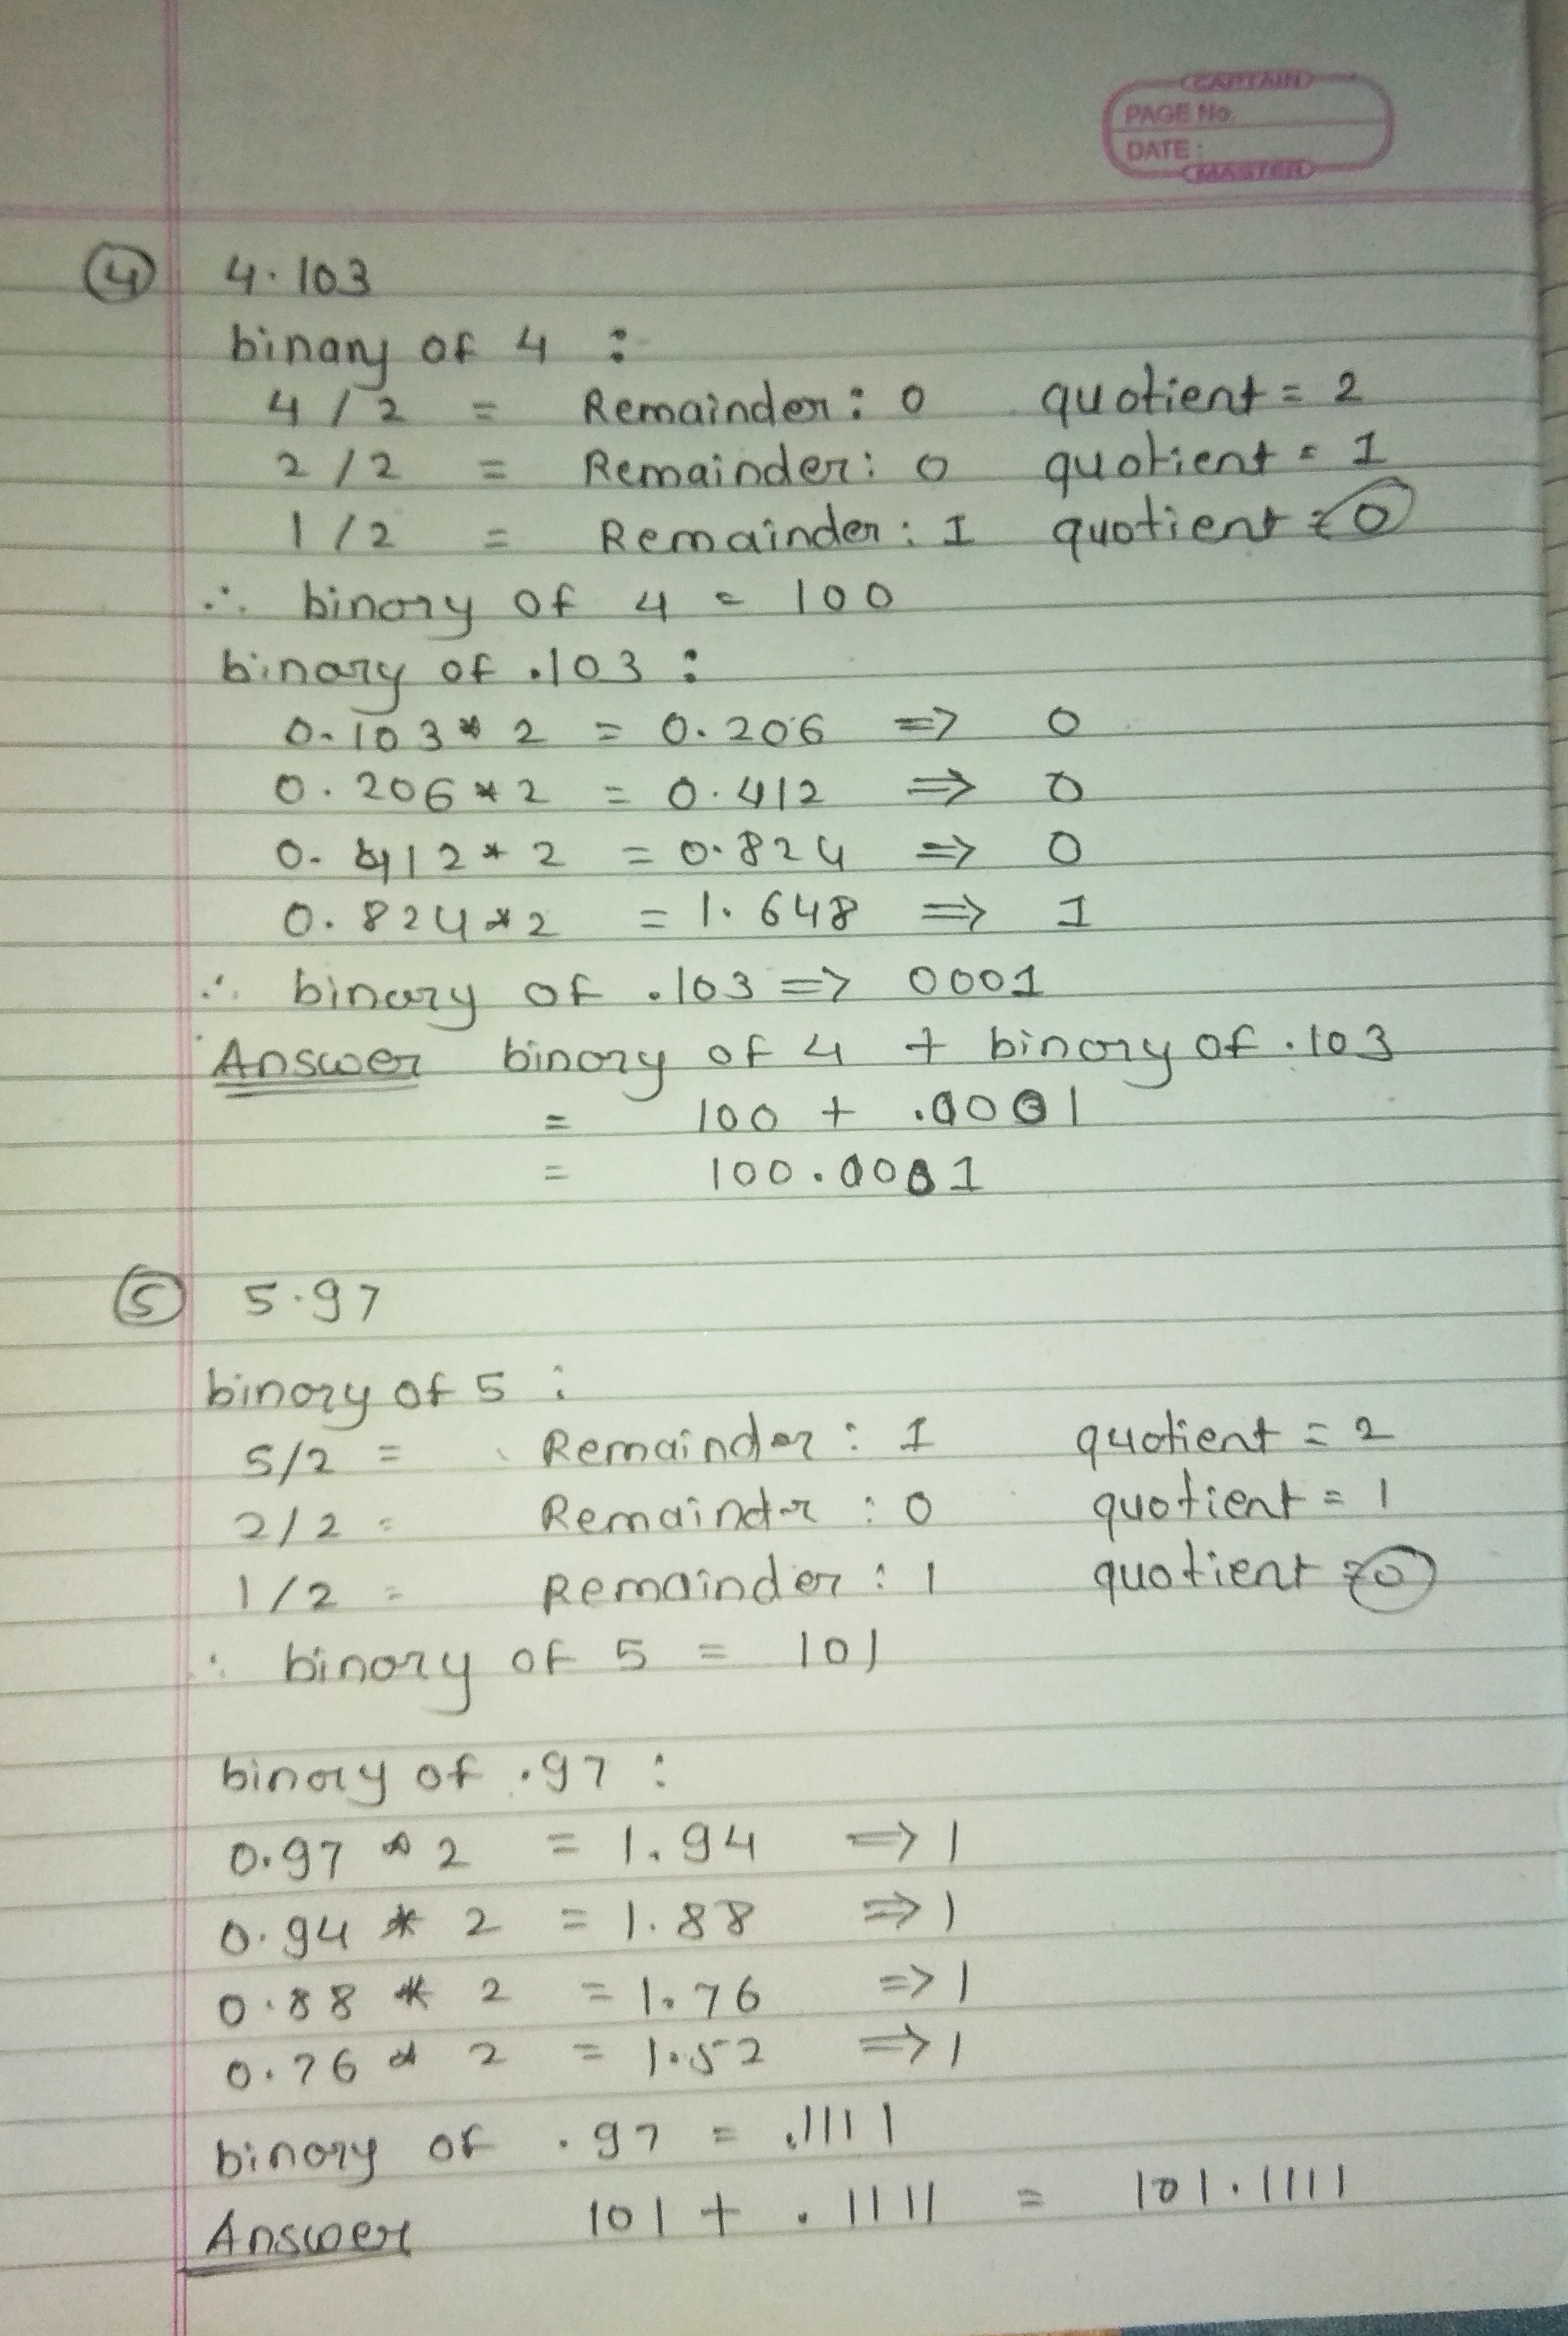 CAPTAIN
PAGE No.
DATE :
MASTER
4 4.103
binary of 4 :
4 / 2 = Remainder : 0 quotient = 2
2 / 2 = Remainder : 0 quotient = 1
1 / 2 = Remainder : 1 quotient = 0
∴ binary of 4 = 100
binary of .103 :
0.103 * 2 = 0.206 => 0
0.206 * 2 = 0.412 => 0
0.412 * 2 = 0.824 => 0
0.824 * 2 = 1.648 => 1
∴ binary of .103 => 0001
Answer binary of 4 + binary of .103
= 100 + .0001
= 100.0001
5 5.97
binary of 5 :
5/2 = Remainder : 1 quotient = 2
2/2 = Remainder : 0 quotient = 1
1/2 = Remainder : 1 quotient = 0
∴ binary of 5 = 101
binary of .97 :
0.97 * 2 = 1.94 => 1
0.94 * 2 = 1.88 => 1
0.88 * 2 = 1.76 => 1
0.76 * 2 = 1.52 => 1
binary of .97 = .1111
Answer 101 + .1111 = 101.1111